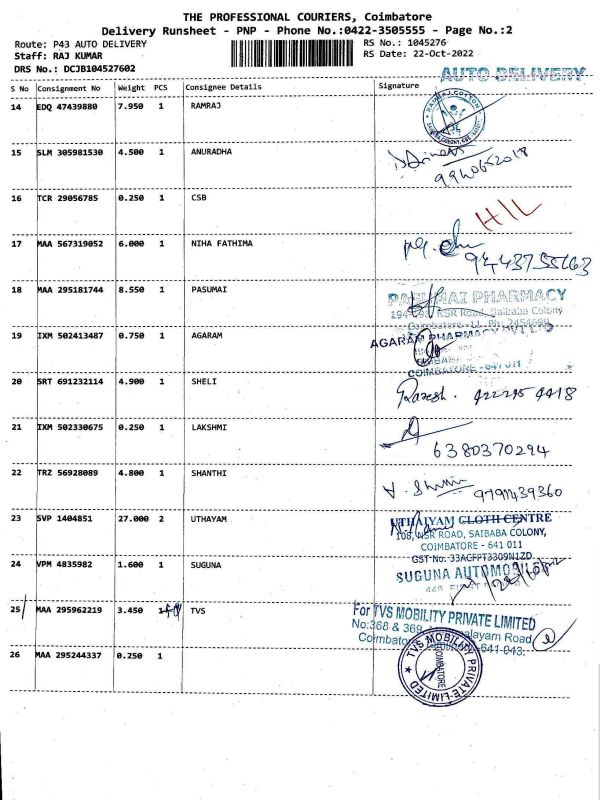 THE PROFESSIONAL COURIERS, Coimbatore
Delivery Runsheet - PNP - Phone No.:0422-3505555 - Page No.:2
Route: P43 AUTO DELIVERY
RS No.: 1045276
Staff: RAJ KUMAR
RS Date: 22-Oct-2022
DRS No.: DCJB104527602
AUTO DELIVERY
S No Consignment No Weight PCS Consignee Details Signature
14 EDQ 47439880 7.950 1 RAMRAJ
RAMRAJ COTTON
15 SLM 305981530 4.500 1 ANURADHA
9940652018
16 TCR 29056785 0.250 1 CSB
HIL
17 MAA 567319052 6.000 1 NIHA FATHIMA
18 MAA 295181744 8.550 1 PASUMAI
PASUMAI PHARMACY
NSR Road, Saibaba Colony
Coimbatore - 11. Ph:
19 IXM 502413487 0.750 1 AGARAM
AGARAM PHARMACY
COIMBATORE - 641 011
20 SRT 691232114 4.900 1 SHELI
21 IXM 502330675 0.250 1 LAKSHMI
6380370294
22 TRZ 56928089 4.800 1 SHANTHI
9791439360
23 SVP 1404851 27.000 2 UTHAYAM
UTHAIYAM CLOTH CENTRE
108, NSR ROAD, SAIBABA COLONY,
COIMBATORE - 641 011
GST No: 33ACFPT3309N1ZD
24 VPM 4835982 1.600 1 SUGUNA
SUGUNA AUTOMOBILES
25 MAA 295962219 3.450 TVS
For TVS MOBILITY PRIVATE LIMITED
No:368 & 369, Road
641 043.
26 MAA 295244337 0.250 1
TVS MOBILITY PRIVATE LIMITED
COIMBATORE